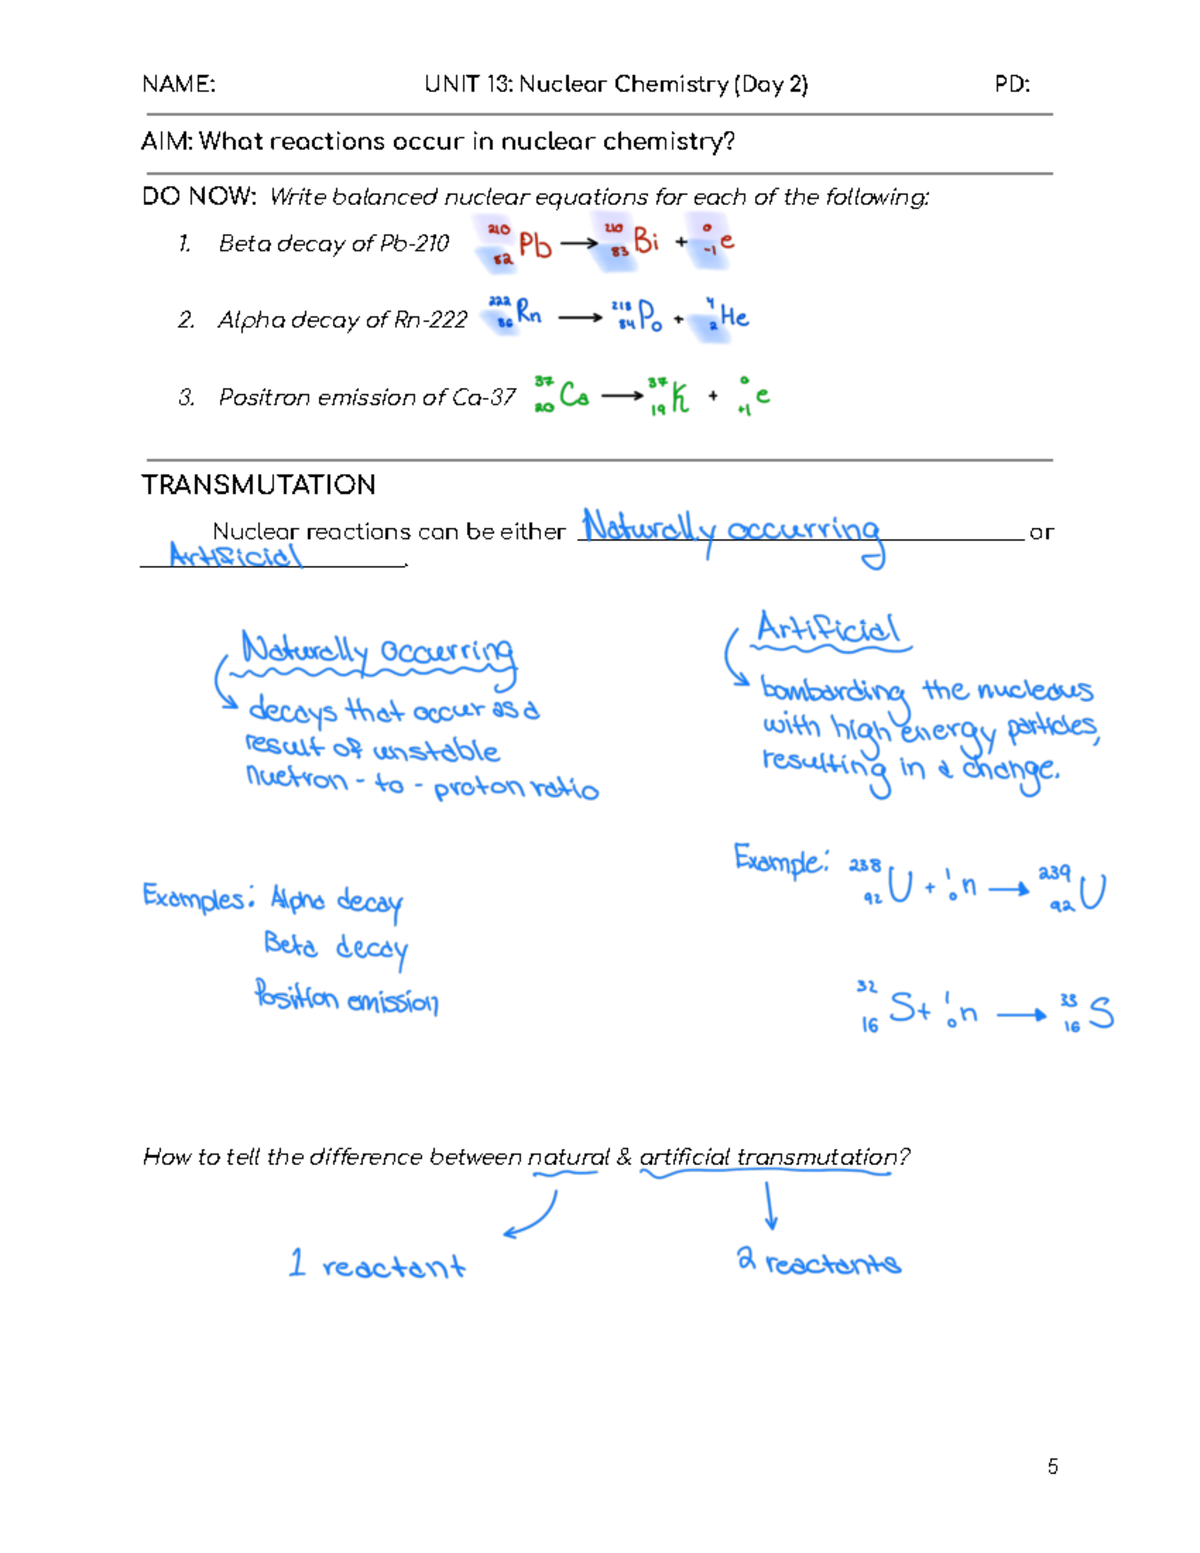 NAME: UNIT 13: Nuclear Chemistry (Day 2) PD:
AIM: What reactions occur in nuclear chemistry?
DO NOW: Write balanced nuclear equations for each of the following:
1. Beta decay of Pb-210 ²¹⁰₈₂Pb → ²¹⁰₈₃Bi + ⁰₋₁e
2. Alpha decay of Rn-222 ²²²₈₆Rn → ²¹⁸₈₄Po + ⁴₂He
3. Positron emission of Ca-37 ³⁷₂₀Ca → ³⁷₁₉K + ⁰₊₁e
TRANSMUTATION
Nuclear reactions can be either Naturally occurring or
Artificial.
Naturally occurring
decays that occur as a
result of unstable
nuetron - to - proton ratio
Examples: Alpha decay
Beta decay
Position emission
Artificial
bombarding the nucleous
with high energy particles,
resulting in a change.
Example: ²³⁸₉₂U + ¹₀n → ²³⁹₉₂U
³²₁₆S + ¹₀n → ³³₁₆S
How to tell the difference between natural & artificial transmutation?
1 reactant 2 reactants
5